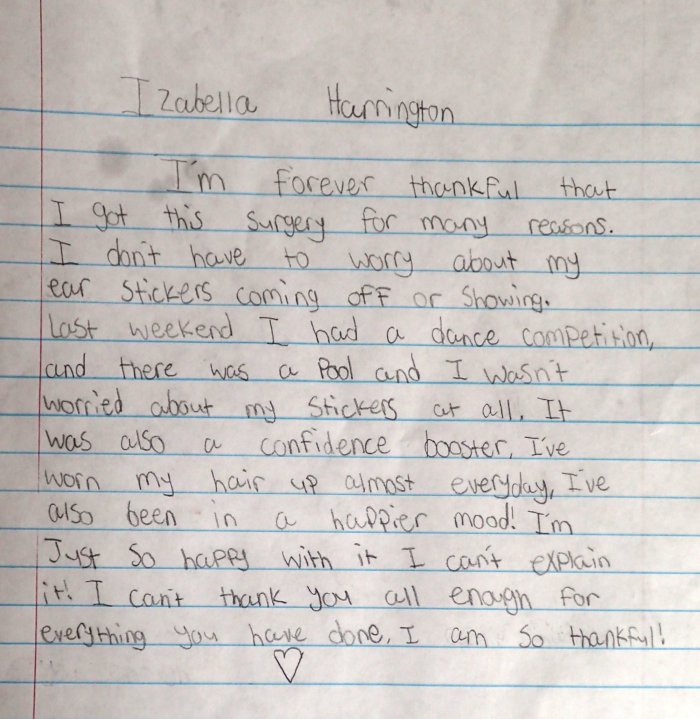 Izabella Harrington
I'm forever thankful that
I got this surgery for many reasons.
I don't have to worry about my
ear stickers coming off or showing.
Last weekend I had a dance competition,
and there was a pool and I wasn't
worried about my stickers at all. It
was also a confidence booster, I've
worn my hair up almost everyday, I've
also been in a happier mood! I'm
Just so happy with it I can't explain
it! I can't thank you all enough for
everything you have done. I am so thankful!